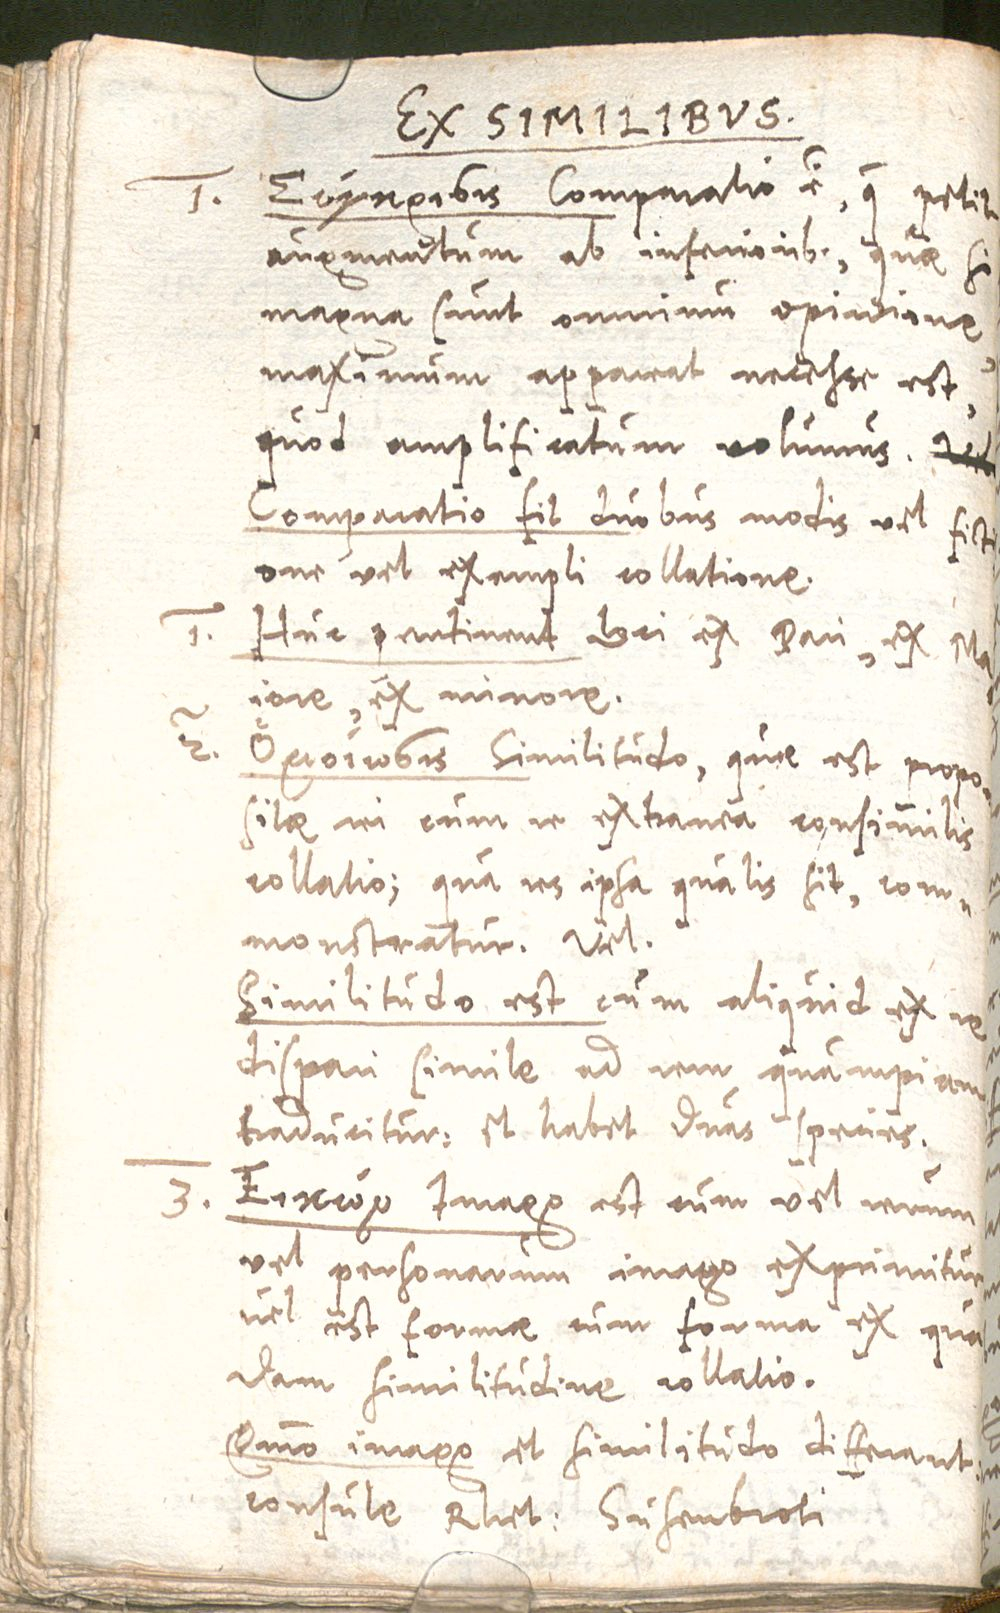 EX SIMILIBVS.
1. Σύγκρισις Comparatio ē, q̄ petit
augmentum ab inferiorib., quæ si
magna sunt omnium opinione,
maximum appareat necesse est,
quod amplificatum volumus. Vel
Comparatio fit duobus modis vel ficti
one vel exempli collatione.
1. Huc pertinent loci ex Pari, ex Ma
iore, ex minore.
2. Ὁμοίωσις Similitudo, quæ est propo-
sitæ rei cum re extranea consimilis
collatio; qua res ipsa qualis sit, com-
monstratur. Vel.
Similitudo est cum aliquid ex re
dispari simile ad rem quampiam
traducitur: et habet duas species.
3. Εικών Imago est cum vel rerum
vel personarum imago exprimitur
vel est formæ cum forma ex qua
dam similitudine collatio.
Quōo imago et similitudo differant.
consule Rhet: Susenbroti